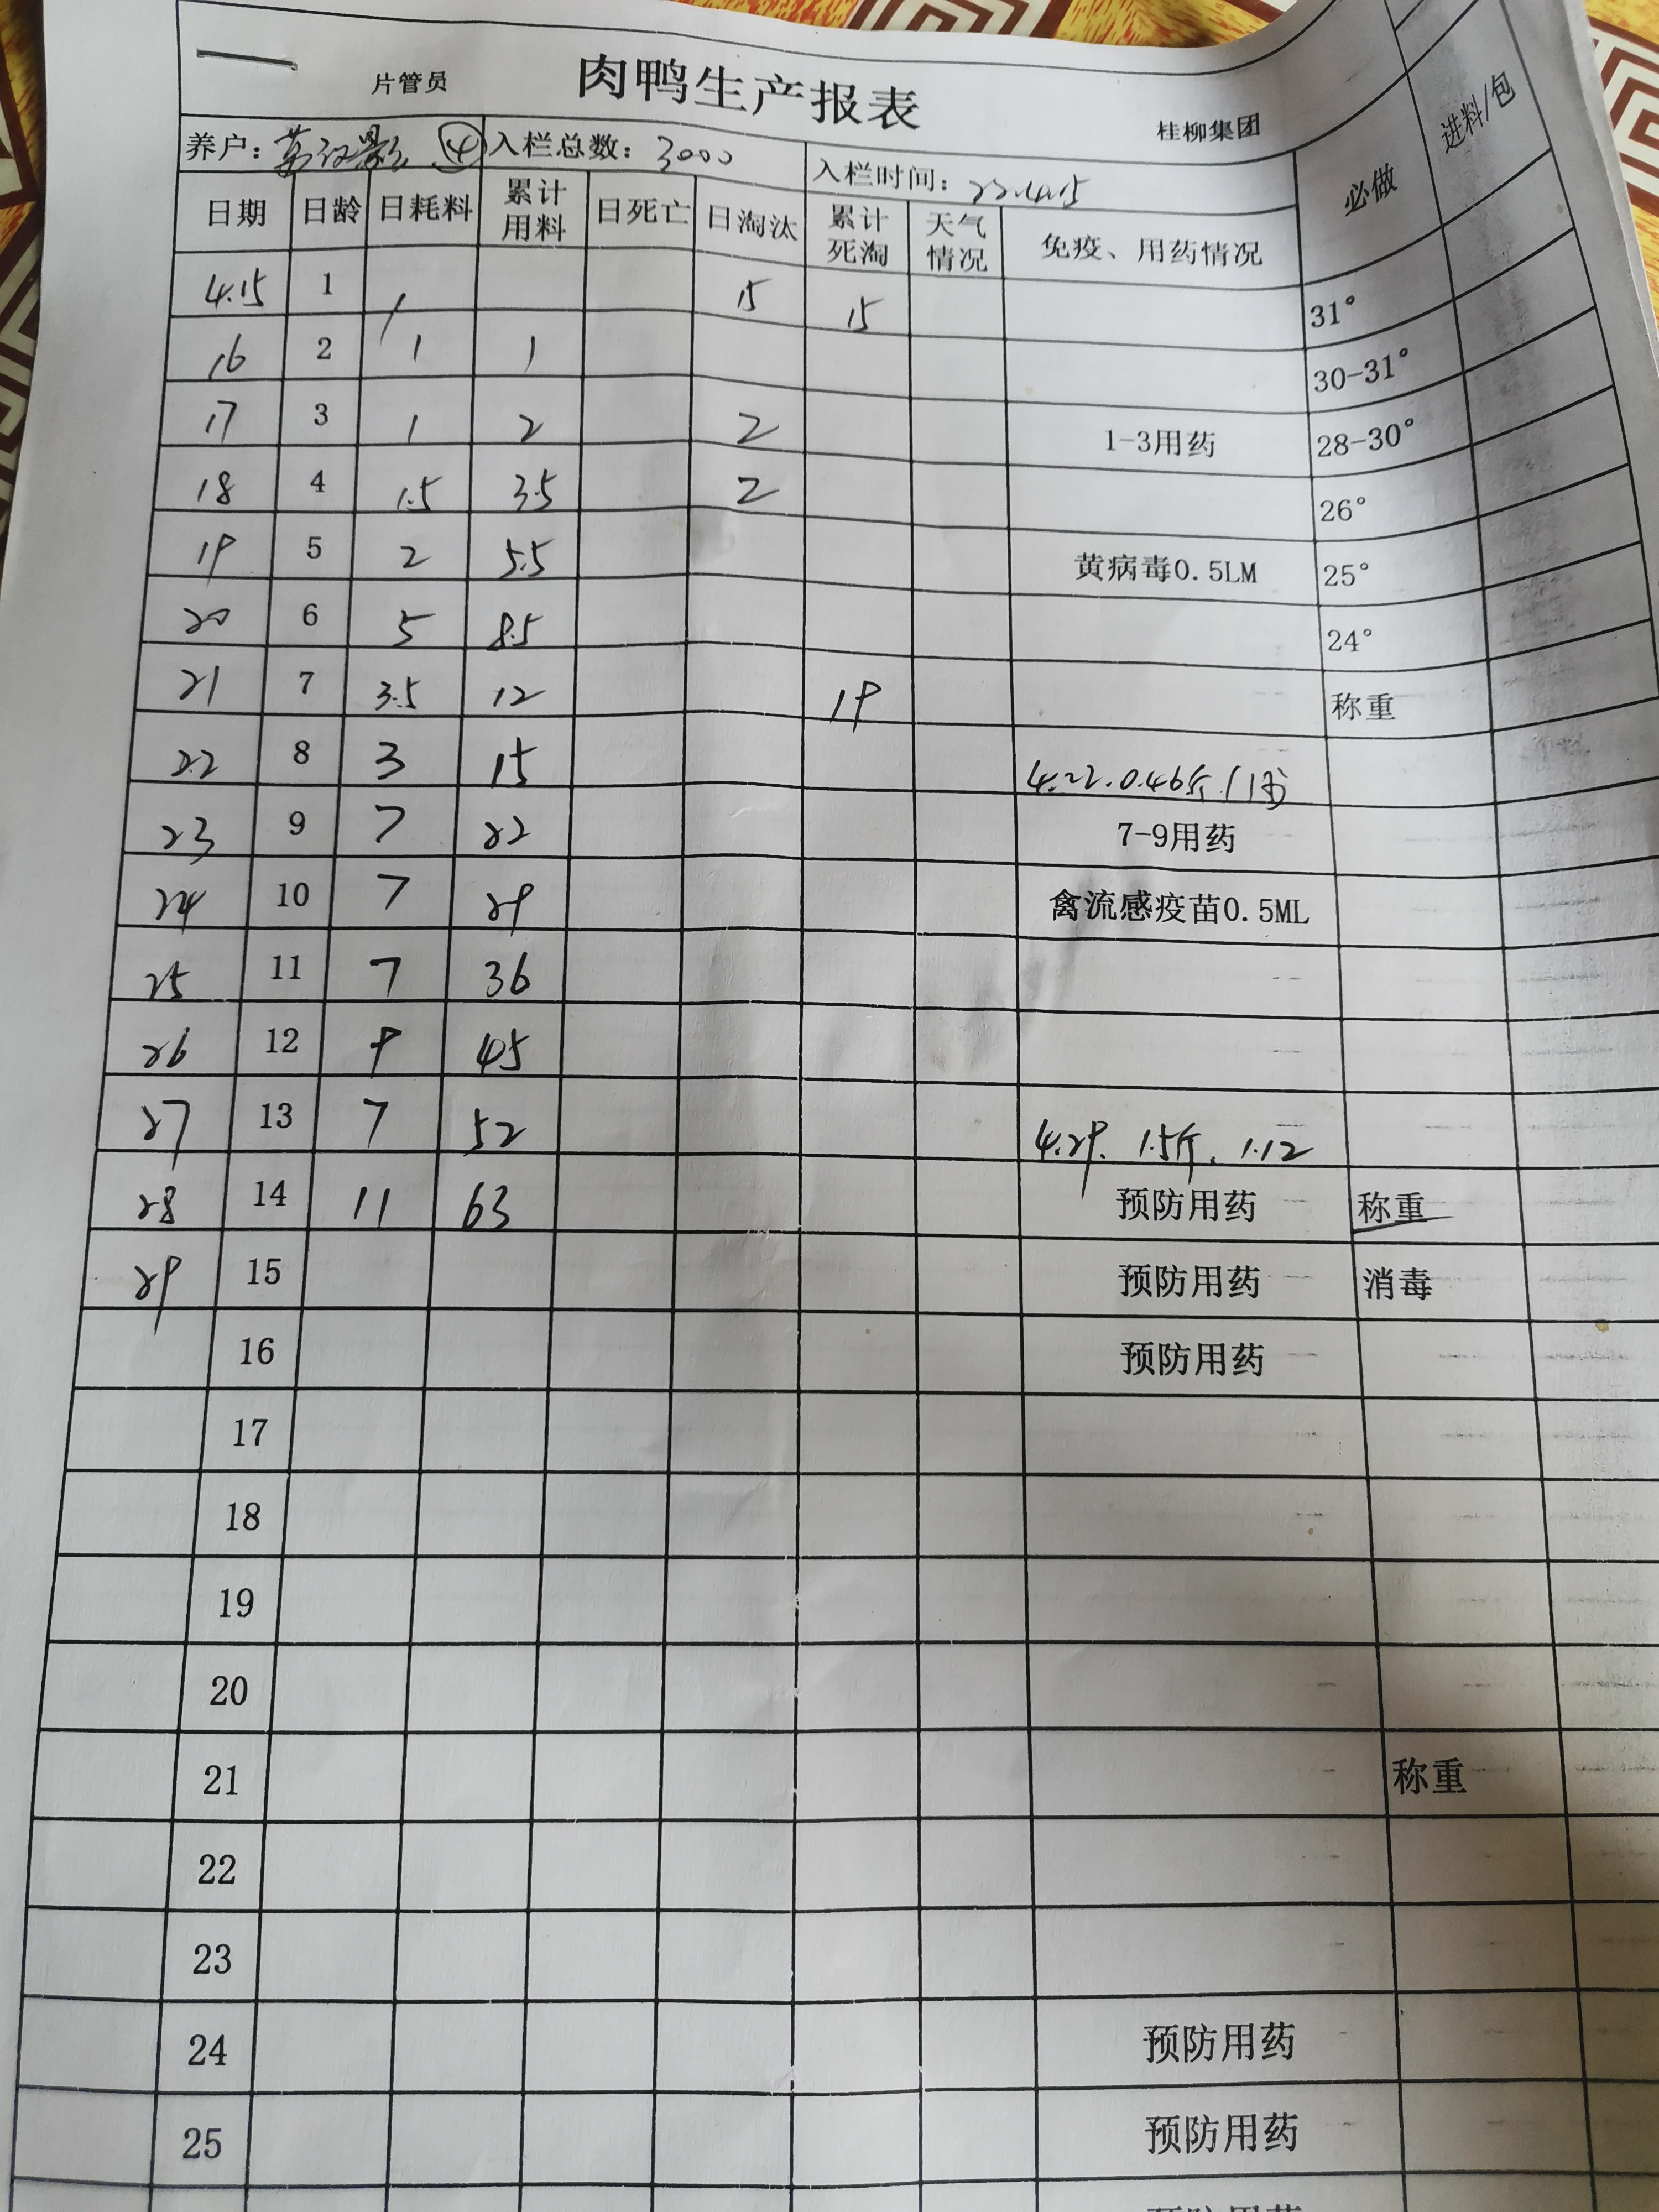 片管员 肉鸭生产报表 桂柳集团
养户： ④ 入栏总数：3000 入栏时间：22.4.15 必做 进料/包
日期 日龄 日耗料 累计用料 日死亡 日淘汰 累计死淘 天气情况 免疫、用药情况
4.15 1 15 15 31°
16 2 1 1 30-31°
17 3 1 2 2 1-3用药 28-30°
18 4 1.5 3.5 2 26°
19 5 2 5.5 黄病毒0.5LM 25°
20 6 5 8.5 24°
21 7 3.5 12 19 称重
22 8 3 15 4.22.0.46斤
23 9 7 22 7-9用药
24 10 7 29 禽流感疫苗0.5ML
25 11 7 36
26 12 9 45
27 13 7 52 4.29. 1.5斤. 1.12
28 14 11 63 预防用药 称重
29 15 预防用药 消毒
16 预防用药
17
18
19
20
21 称重
22
23
24 预防用药
25 预防用药
预防用药